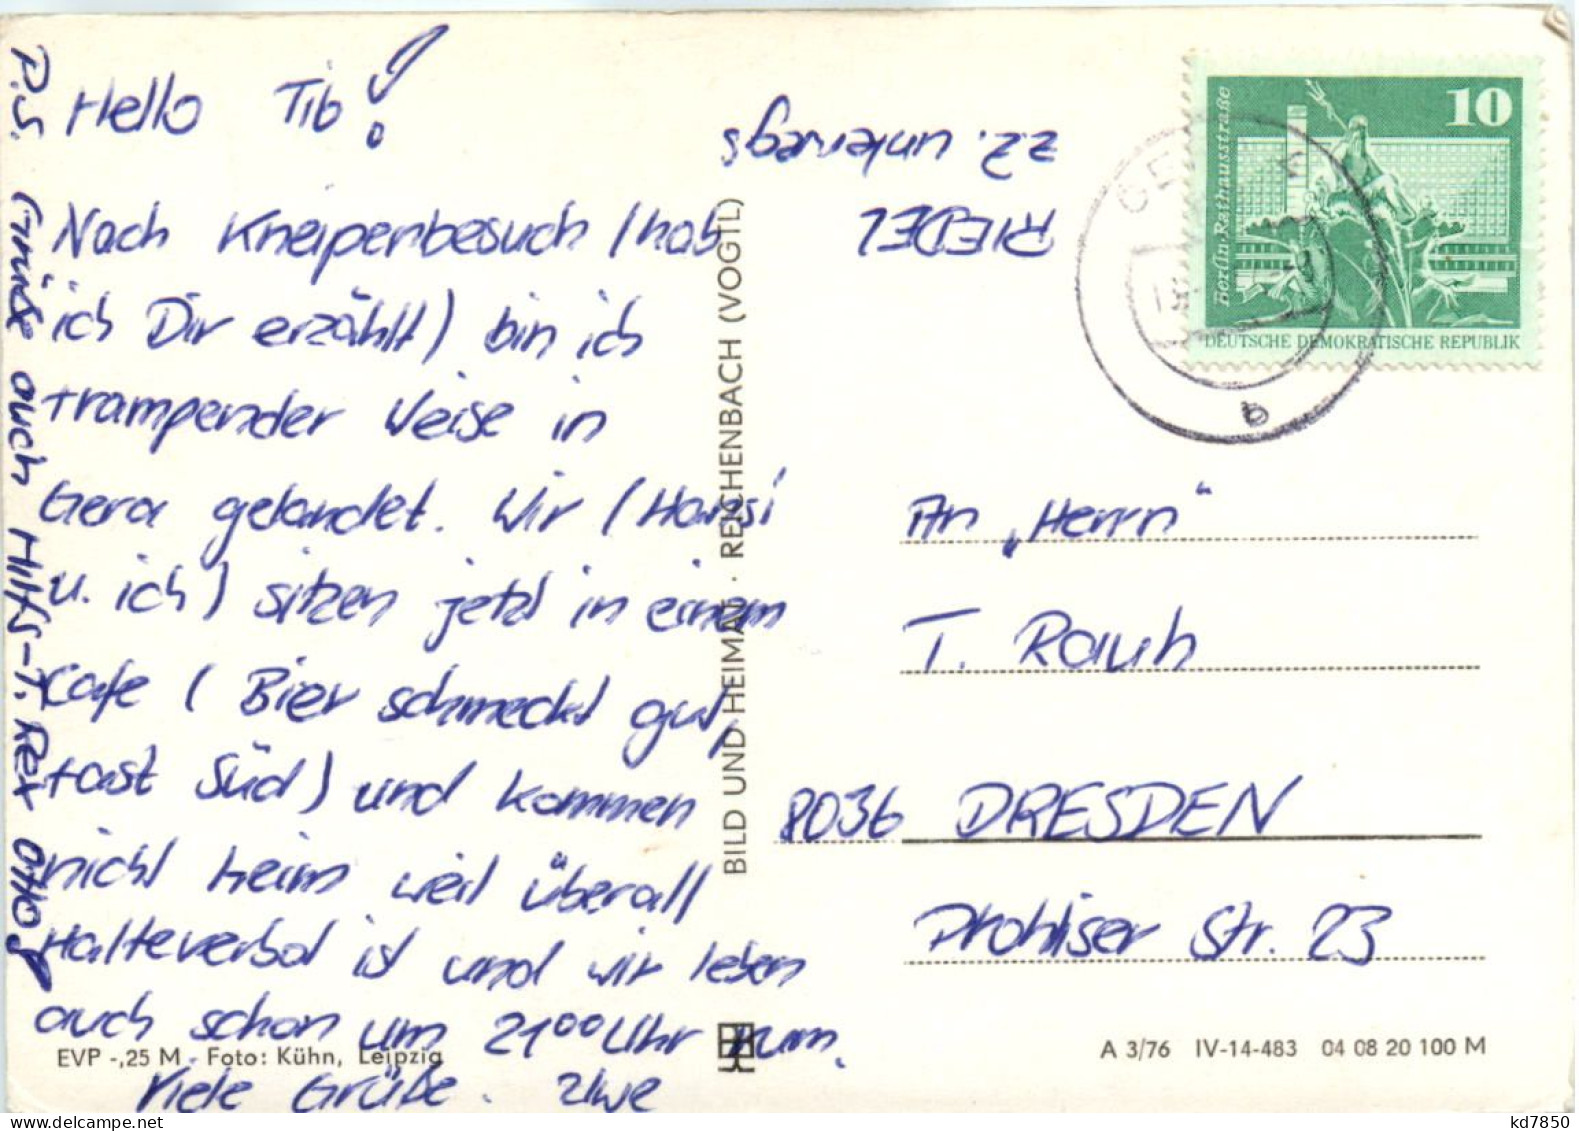 Hello Tib!
Nach Kneipenbesuch (hab
ich Dir erzählt) bin ich
trampender Weise in
Gera gelandet. Wir (Hansi
u. ich) sitzen jetzt in einem
Cafe (Bier schmeckt gut,
fast Süd) und kommen
nicht heim weil überall
Halteverbot ist und wir leben
auch schon um 21⁰⁰ Uhr rum.
Viele Grüße.
P.S. Grüße auch Hilfs-T. Rex Otto
RIEDEL
z.Z. unterwegs
BILD UND HEIMAT · REICHENBACH (VOGTL)
10
Berlin·Rathausstraße
DEUTSCHE DEMOKRATISCHE REPUBLIK
b
An „Herrn“
T. Rauh
8036 DRESDEN
Prohliser Str. 23
EVP -,25 M · Foto: Kühn, Leipzig
A 3/76 IV-14-483 04 08 20 100 M
kd7850